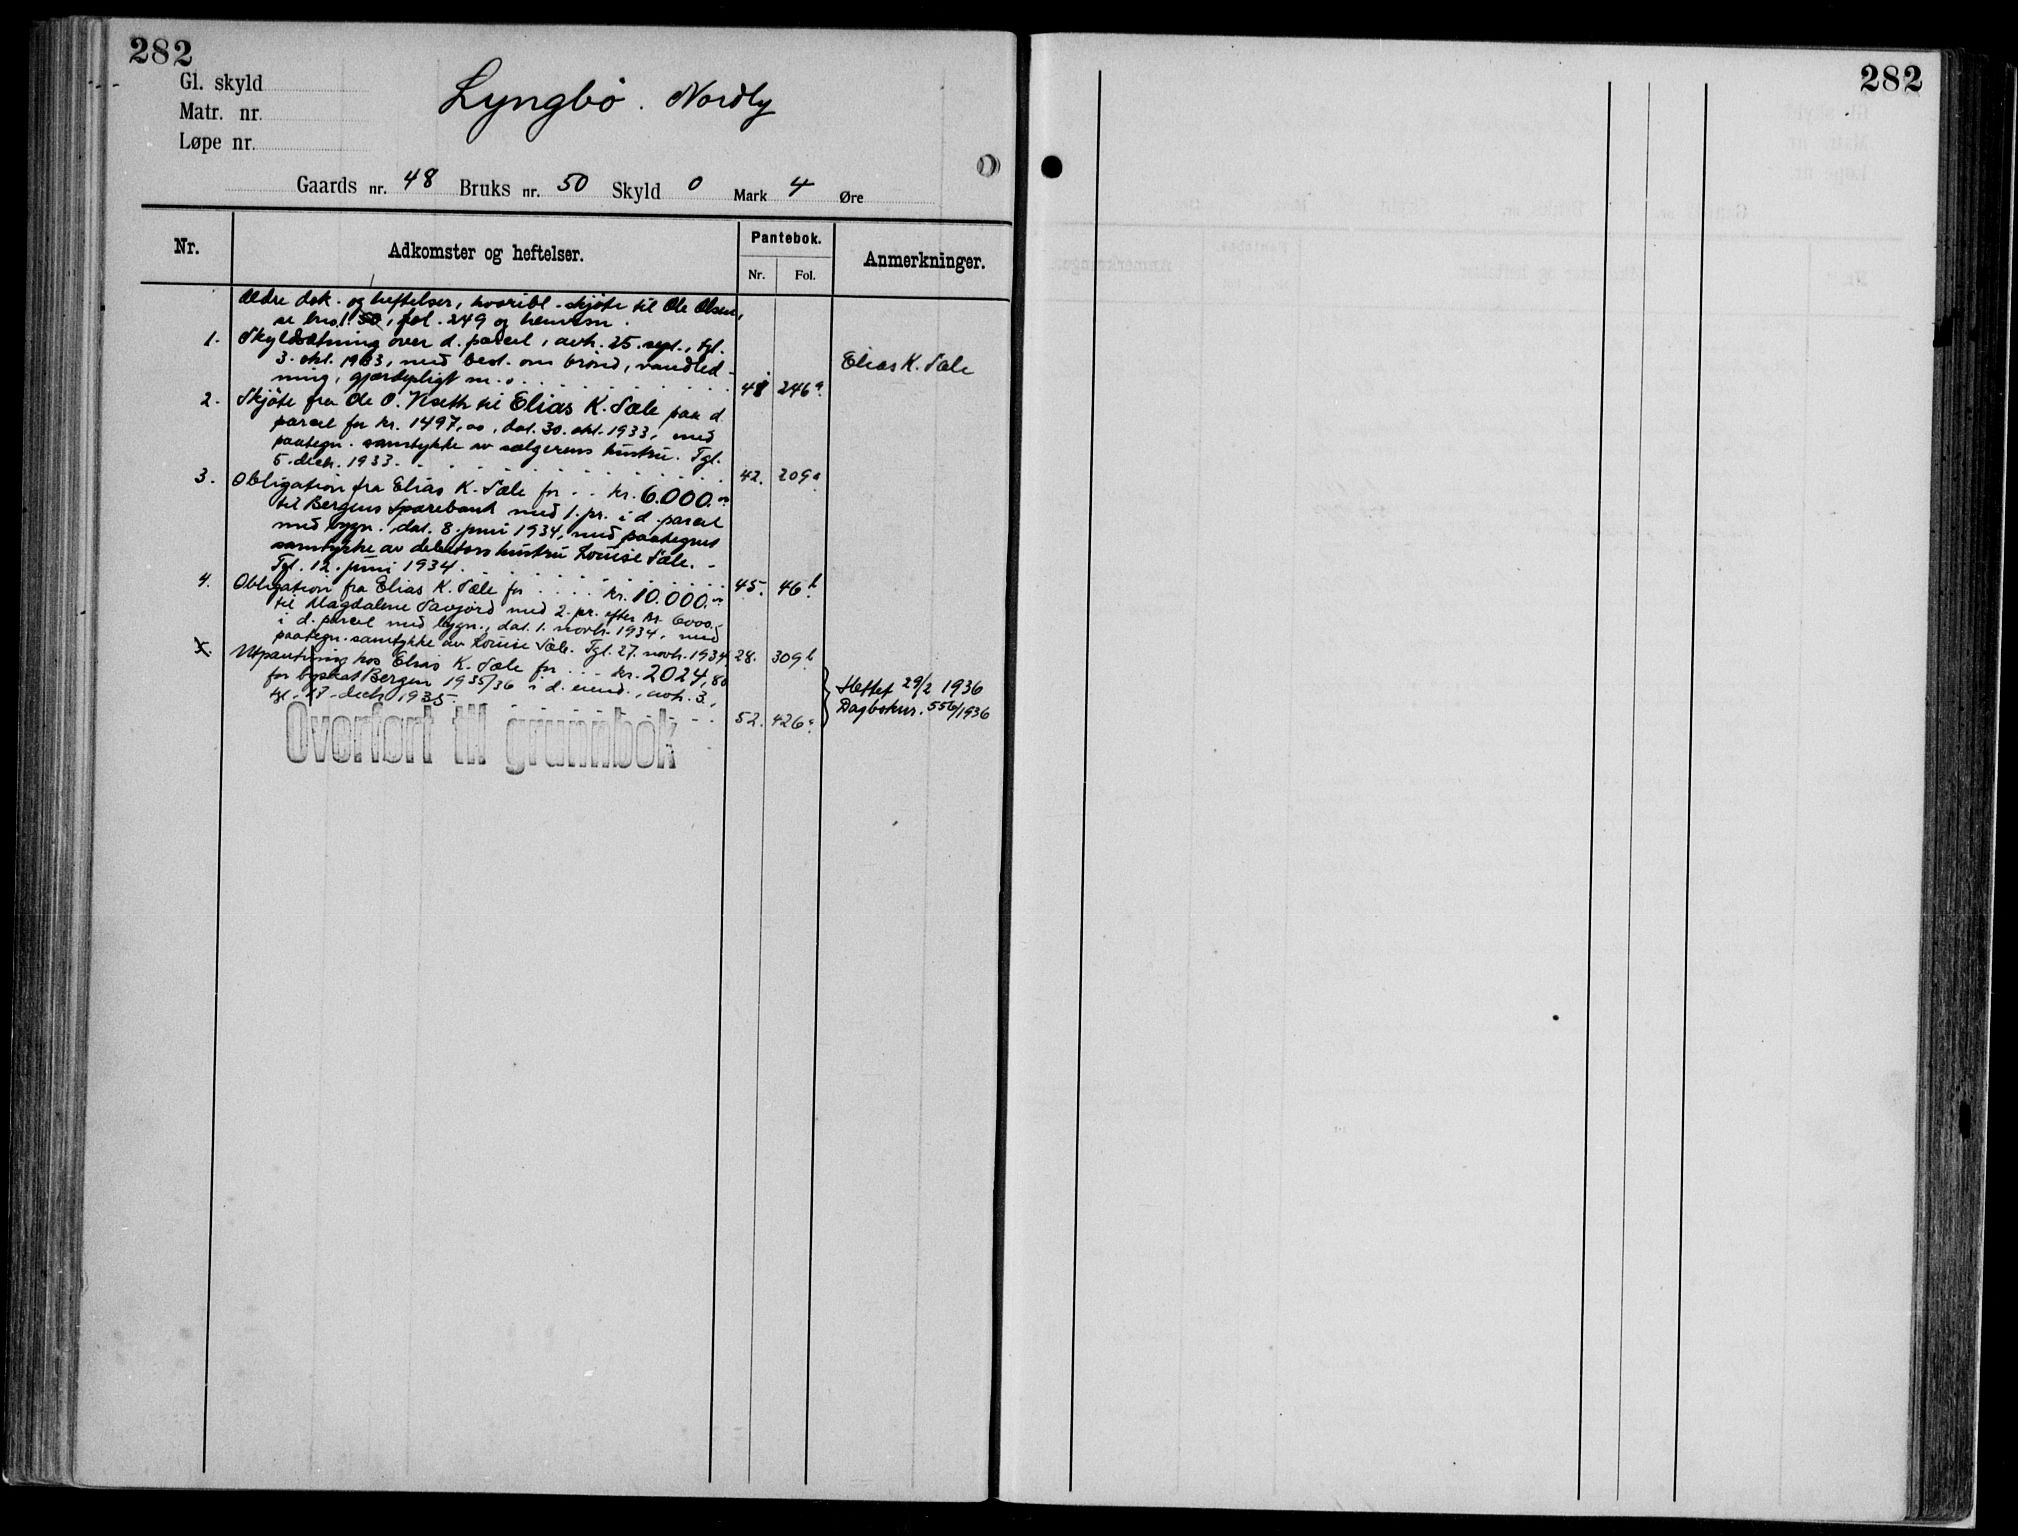 282
Gl. skyld
Matr. nr.
Løpe nr.
Lyngbø. Nordly
Gaards nr. 48 Bruks nr. 50 Skyld 0 Mark 4 Øre
Nr.
Adkomster og heftelser.
Pantebok.
Nr. Fol.
Anmerkninger.
Ældre dok. og heftelser, hvoribl. skjøte til Ole Olsen,
se brno. 1, fol. 249 og henvisn.
1. Skyldsætning over d. parcel, avh. 25. sept., tgl.
3. okt. 1933, med best. om brønd, vandled-
ning, gjærdepligt m. . . . 48 246a
Elias K. Sæle
2. Skjøte fra Ole O. Næth til Elias K. Sæle paa d.
parcel for kr. 1497,00, dat. 30. okt. 1933, med
paategn. samtykke av sælgerens hustru. Tgl.
5. decb. 1933. . . . 42. 209a
3. Obligation fra Elias K. Sæle for . . kr. 6.000.00
til Bergens Sparebank med 1. pr. i d. parcel
med bygn. dat. 8. juni 1934, med paategnet
samtykke av debitors hustru Louise Sæle. -
Tgl. 12. juni 1934. . . . 45. 46b
4. Obligation fra Elias K. Sæle for . . . . kr. 10.000.00
til Magdalene med 2. pr. efter kr. 6000.-
i d. parcel med bygn., dat. 1. novb. 1934, med
paategn. samtykke av Louise Sæle. Tgl. 27. novb. 1934. 28. 309b
5. Utpantning hos Elias K. Sæle for . . . kr. 2024,80
for byskat Bergen 1935/36 i d. eiend., avh. 3.,
tgl. 27. decb. 1935. . . . 52. 426a
Hettef 29/2 1936
Dagboknr. 556/1936
Overført til grunnbok
282